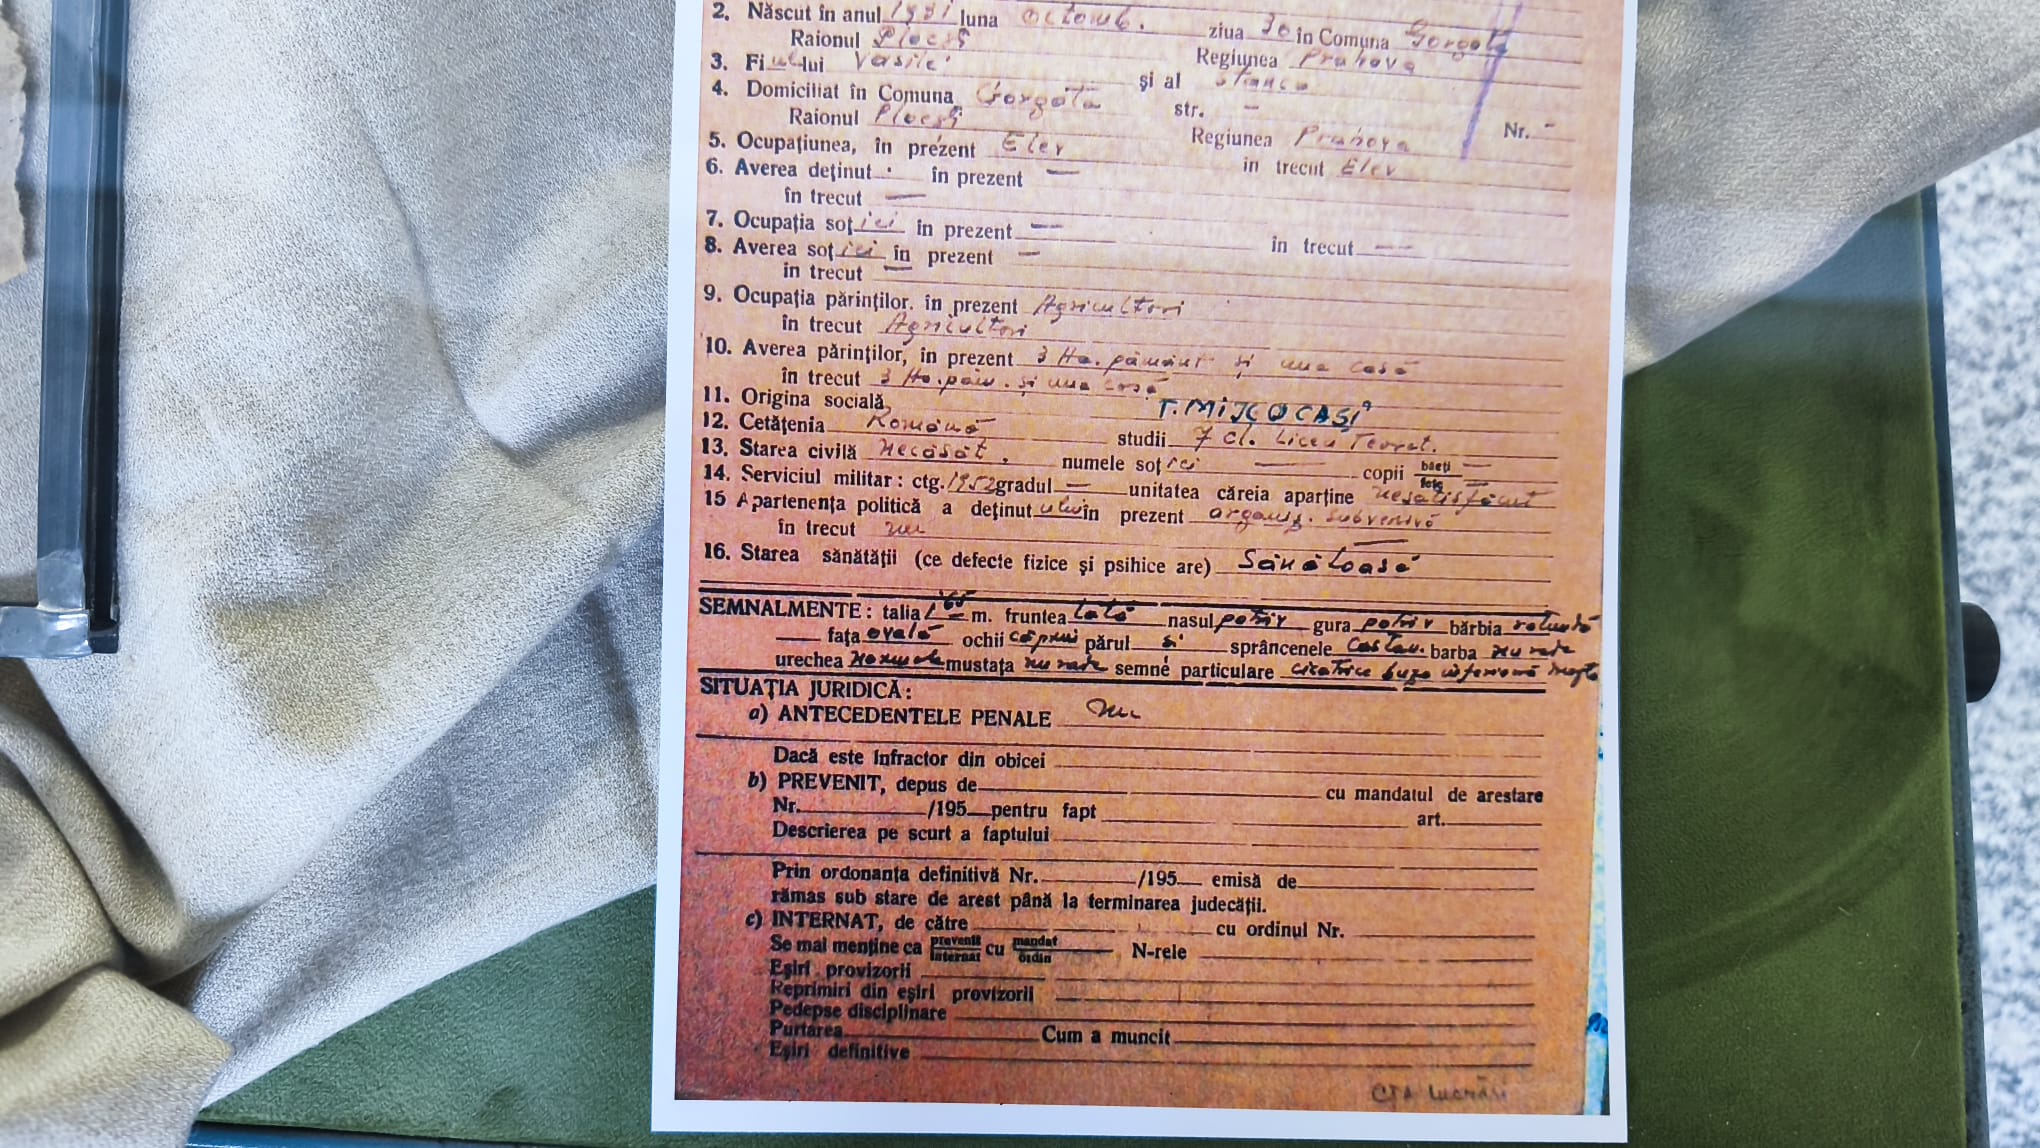 2. Născut în anul 1931 luna octomb. ziua 30 în Comuna Gorgota
Raionul Ploești Regiunea Prahova
3. Fiului Vasile și al Stanca
4. Domiciliat în Comuna Gorgota str. — Nr. -
Raionul Ploești Regiunea Prahova
5. Ocupațiunea, în prezent Elev în trecut Elev
6. Averea deținut. în prezent —
în trecut —
7. Ocupația soției în prezent — în trecut —
8. Averea soției în prezent —
în trecut —
9. Ocupația părinților. în prezent Agricultori
în trecut Agricultori
10. Averea părinților, în prezent 3 Ha. pământ și una casă
în trecut 3 Ha. păm. și una casă
11. Origina socială T. MIJLOCAȘI
12. Cetățenia Română studii 7 cl. Liceu Teoret.
13. Starea civilă necăsăt. numele soției — copii băeți — fete —
14. Serviciul militar: ctg. 1952 gradul — unitatea căreia aparține nesatisfăcut
15 Apartenența politică a deținutului în prezent organiz. subversivă
în trecut nu
16. Starea sănătății (ce defecte fizice și psihice are) Sănătoasă
SEMNALMENTE: talia 1,65 m. fruntea lată nasul potriv gura potriv bărbia rotundă
— fața ovală ochii căprui părul și sprâncenele castan. barba nu rade
urechea normale mustața nu rade semne particulare cicatrice buza inferioară
SITUAȚIA JURIDICĂ:
a) ANTECEDENTELE PENALE nu
Dacă este infractor din obicei
b) PREVENIT, depus de cu mandatul de arestare
Nr. /195 pentru fapt art.
Descrierea pe scurt a faptului
Prin ordonanța definitivă Nr. /195 emisă de
rămas sub stare de arest până la terminarea judecății.
c) INTERNAT, de către cu ordinul Nr.
Se mai menține ca prevenit internat cu mandat ordin N-rele
Eșiri provizorii
Reprimiri din eșiri provizorii
Pedepse disciplinare
Purtarea Cum a muncit
Eșiri definitive